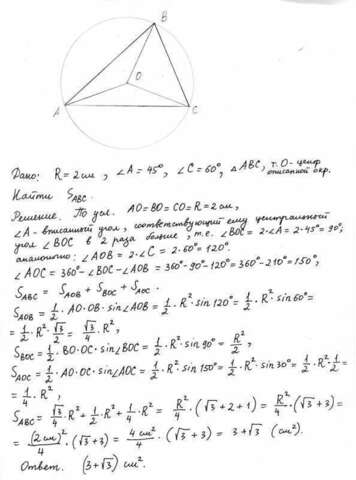 B
O
A
C
Дано: R = 2 см, ∠A = 45°, ∠C = 60°, △ABC, т.О - центр описанной окр.
Найти S_ABC.
Решение. По усл. AO=BO=CO=R=2см,
∠A - вписанный угол, соответствующий ему центральный
угол ∠BOC в 2 раза больше, т.е. ∠BOC = 2·∠A = 2·45° = 90°;
аналогично: ∠AOB = 2·∠C = 2·60° = 120°.
∠AOC = 360° - ∠BOC - ∠AOB = 360° - 90° - 120° = 360° - 210° = 150°,
S_ABC = S_AOB + S_BOC + S_AOC.
S_AOB = 1/2 · AO·OB·sin∠AOB = 1/2 · R²·sin120° = 1/2 · R²·sin60° =
= 1/2 · R² · √3/2 = √3/4 R²,
S_BOC = 1/2 · BO·OC·sin∠BOC = 1/2 · R²·sin90° = R²/2,
S_AOC = 1/2 · AO·OC·sin∠AOC = 1/2 · R²·sin150° = 1/2 · R²·sin30° = 1/2 · R² · 1/2 =
= 1/4 · R²,
S_ABC = √3/4 · R² + 1/2 · R² + 1/4 · R² = R²/4 · (√3+2+1) = R²/4 · (√3+3) =
= (2см)²/4 · (√3+3) = 4см²/4 · (√3+3) = 3+√3 (см²).
Ответ. (3+√3) см².